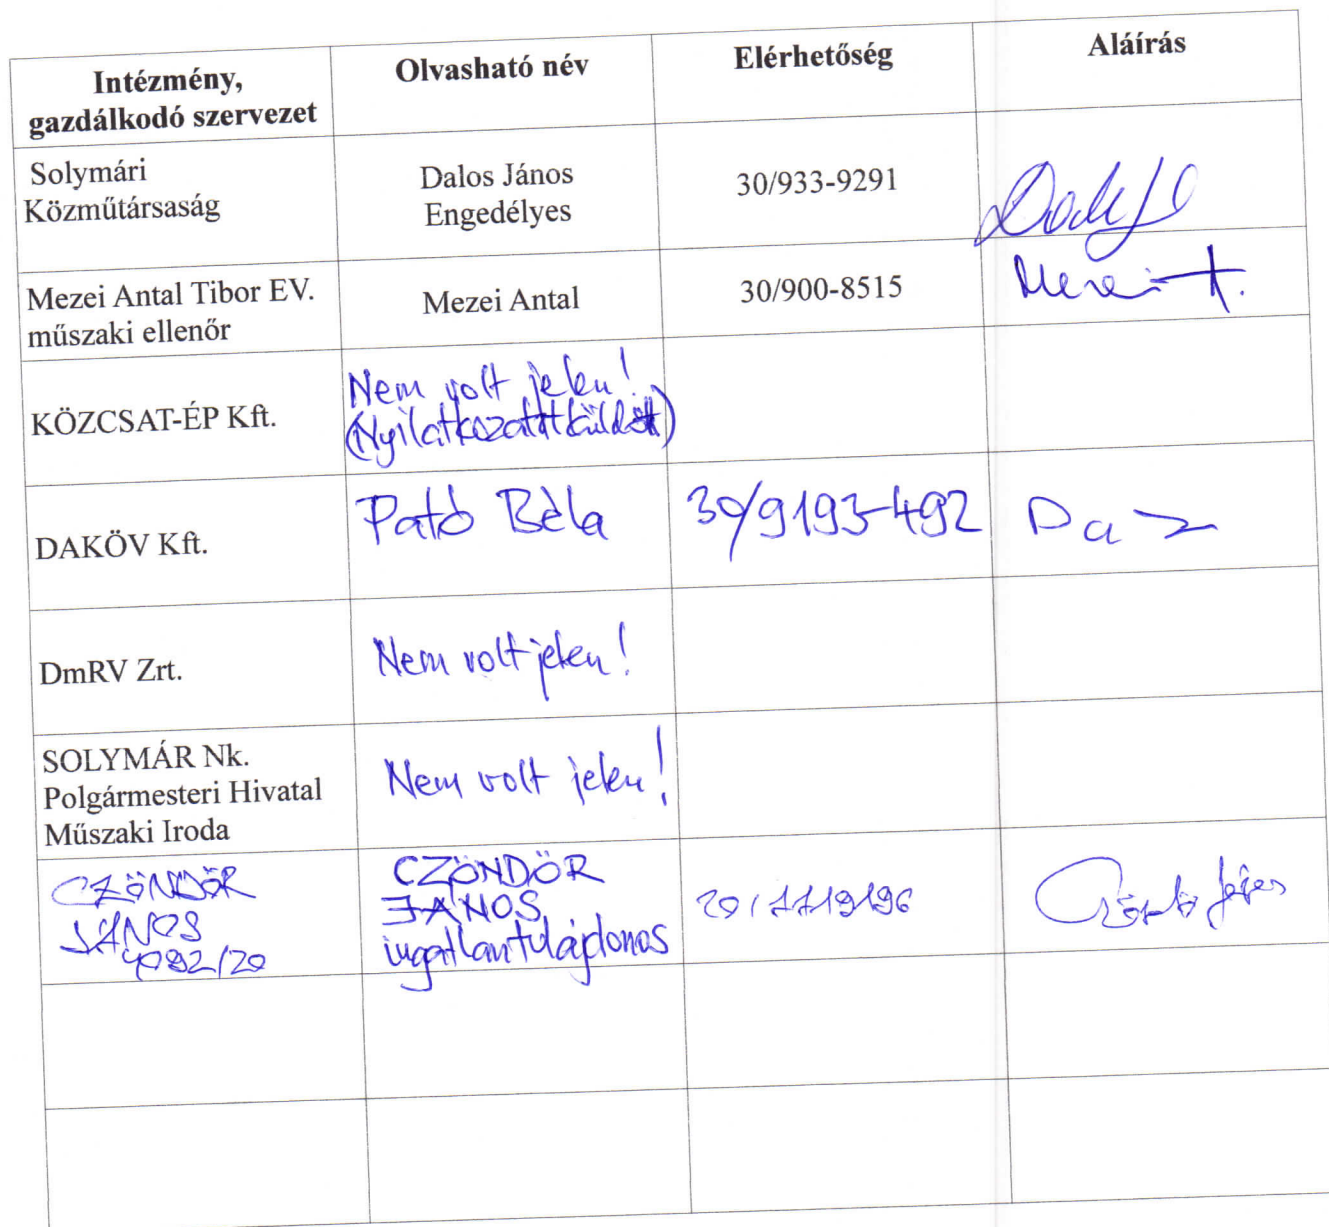 Intézmény,
gazdálkodó szervezet
Olvasható név
Elérhetőség
Aláírás
Solymári
Közműtársaság
Dalos János
Engedélyes
30/933-9291
Mezei Antal Tibor EV.
műszaki ellenőr
Mezei Antal
30/900-8515
Mezei A.
KÖZCSAT-ÉP Kft.
Nem volt jelen!
(Nyilatkozatot küldött)
DAKÖV Kft.
Pató Béla
30/9193-492
DmRV Zrt.
Nem volt jelen!
SOLYMÁR Nk.
Polgármesteri Hivatal
Műszaki Iroda
Nem volt jelen!
CZÖNDÖR
JÁNOS
4092/20
CZÖNDÖR
JÁNOS
ingatlantulajdonos